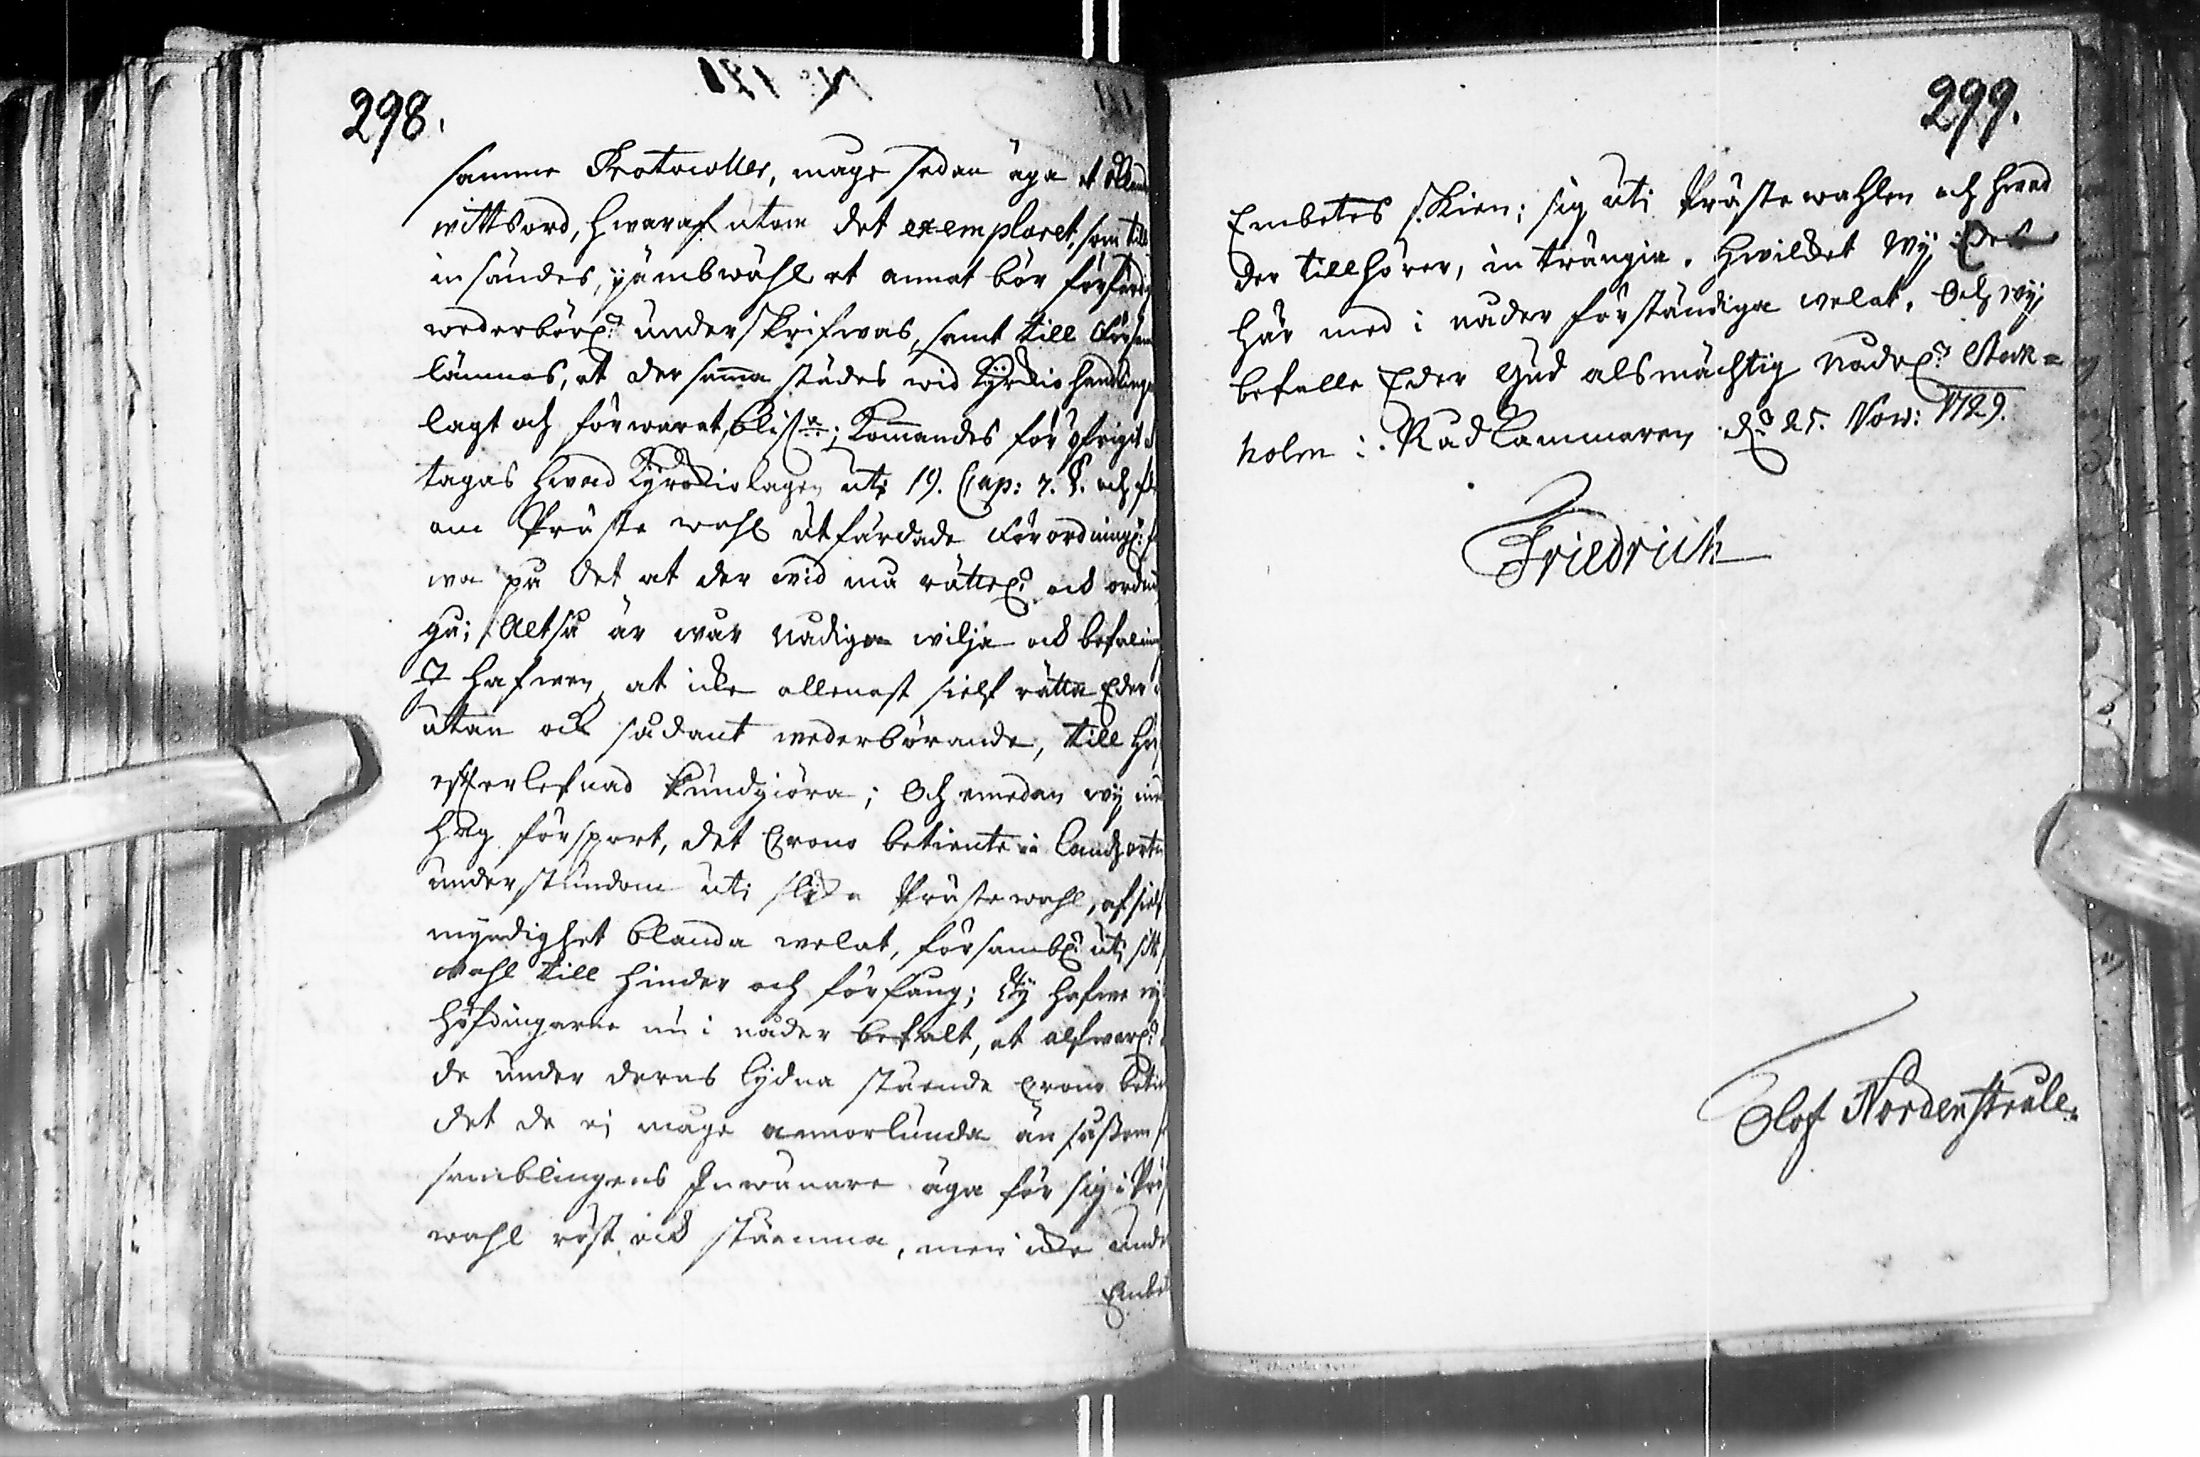 298.
samma Protocoller, måge sedan äga et
wittsord, hwaraf utom det exemplaret, som till
insändes, jämbwähl et annat bör
wederbör: underskrifwas, samt till
lämnas, at der samma städes wid Kyrckio handlinga
lagt och förwarat, blifwa; Kommandes för öfrigit
tagas hwad Kyrckiolagen uti 19. Cap: 7. §. och
om Präste wahl utfärdade Förordning:
wa på det at der wid må rättel: ock
gå; Altså är wår nådiga wilja och befalning
I hafwen, at icke allenast sielf rätta Eder
utan ock sådant wederbörande, till
efterlefnad kundgiöra; Och emedan wij
försport, det Crono betiente i Landzorter
understundom uti slika Präste wahl, af sielf
myndighet blanda welat, försambl: uti sitt
wahl till hinder och förfång; Ty hafwe wij
höfdingarne nu i nåder befalt, at alfwarl:
de under deras lydna stående Crono
det de ej måge annorlunda än såssom
samblingens Inwånare äga för sig i
wahl röst och stämma, men icke
Embe
299.
Embetes skien; sig uti Prästewahlen och hwad
der tillhörer, in trängia. Hwilcket Wij Eder
här med i nåder förständiga welat. Och wij
befalle Eder Gud alsmächtig nådel: Stock=
holm i Rådkammaren d: 25. Nov: 1729.
Friedrich
Olof Nordenstråle.